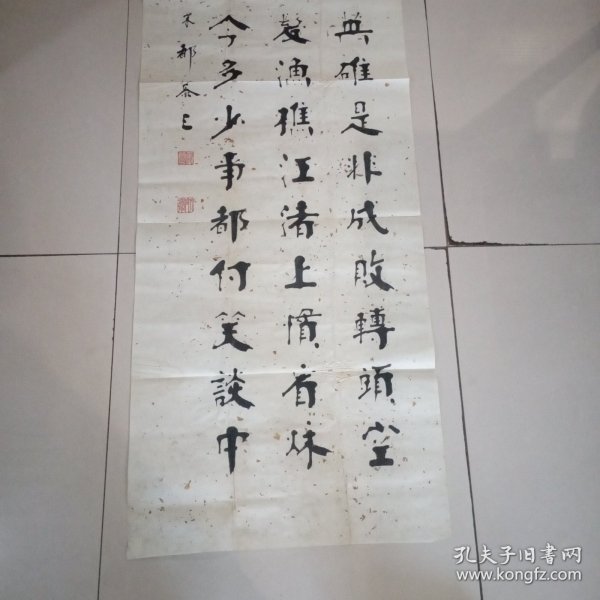 英雄是非成敗轉頭空
髮漁樵江渚上慣看秋
今多少事都付笑談中
孔夫子旧書网
www.kongfz.com